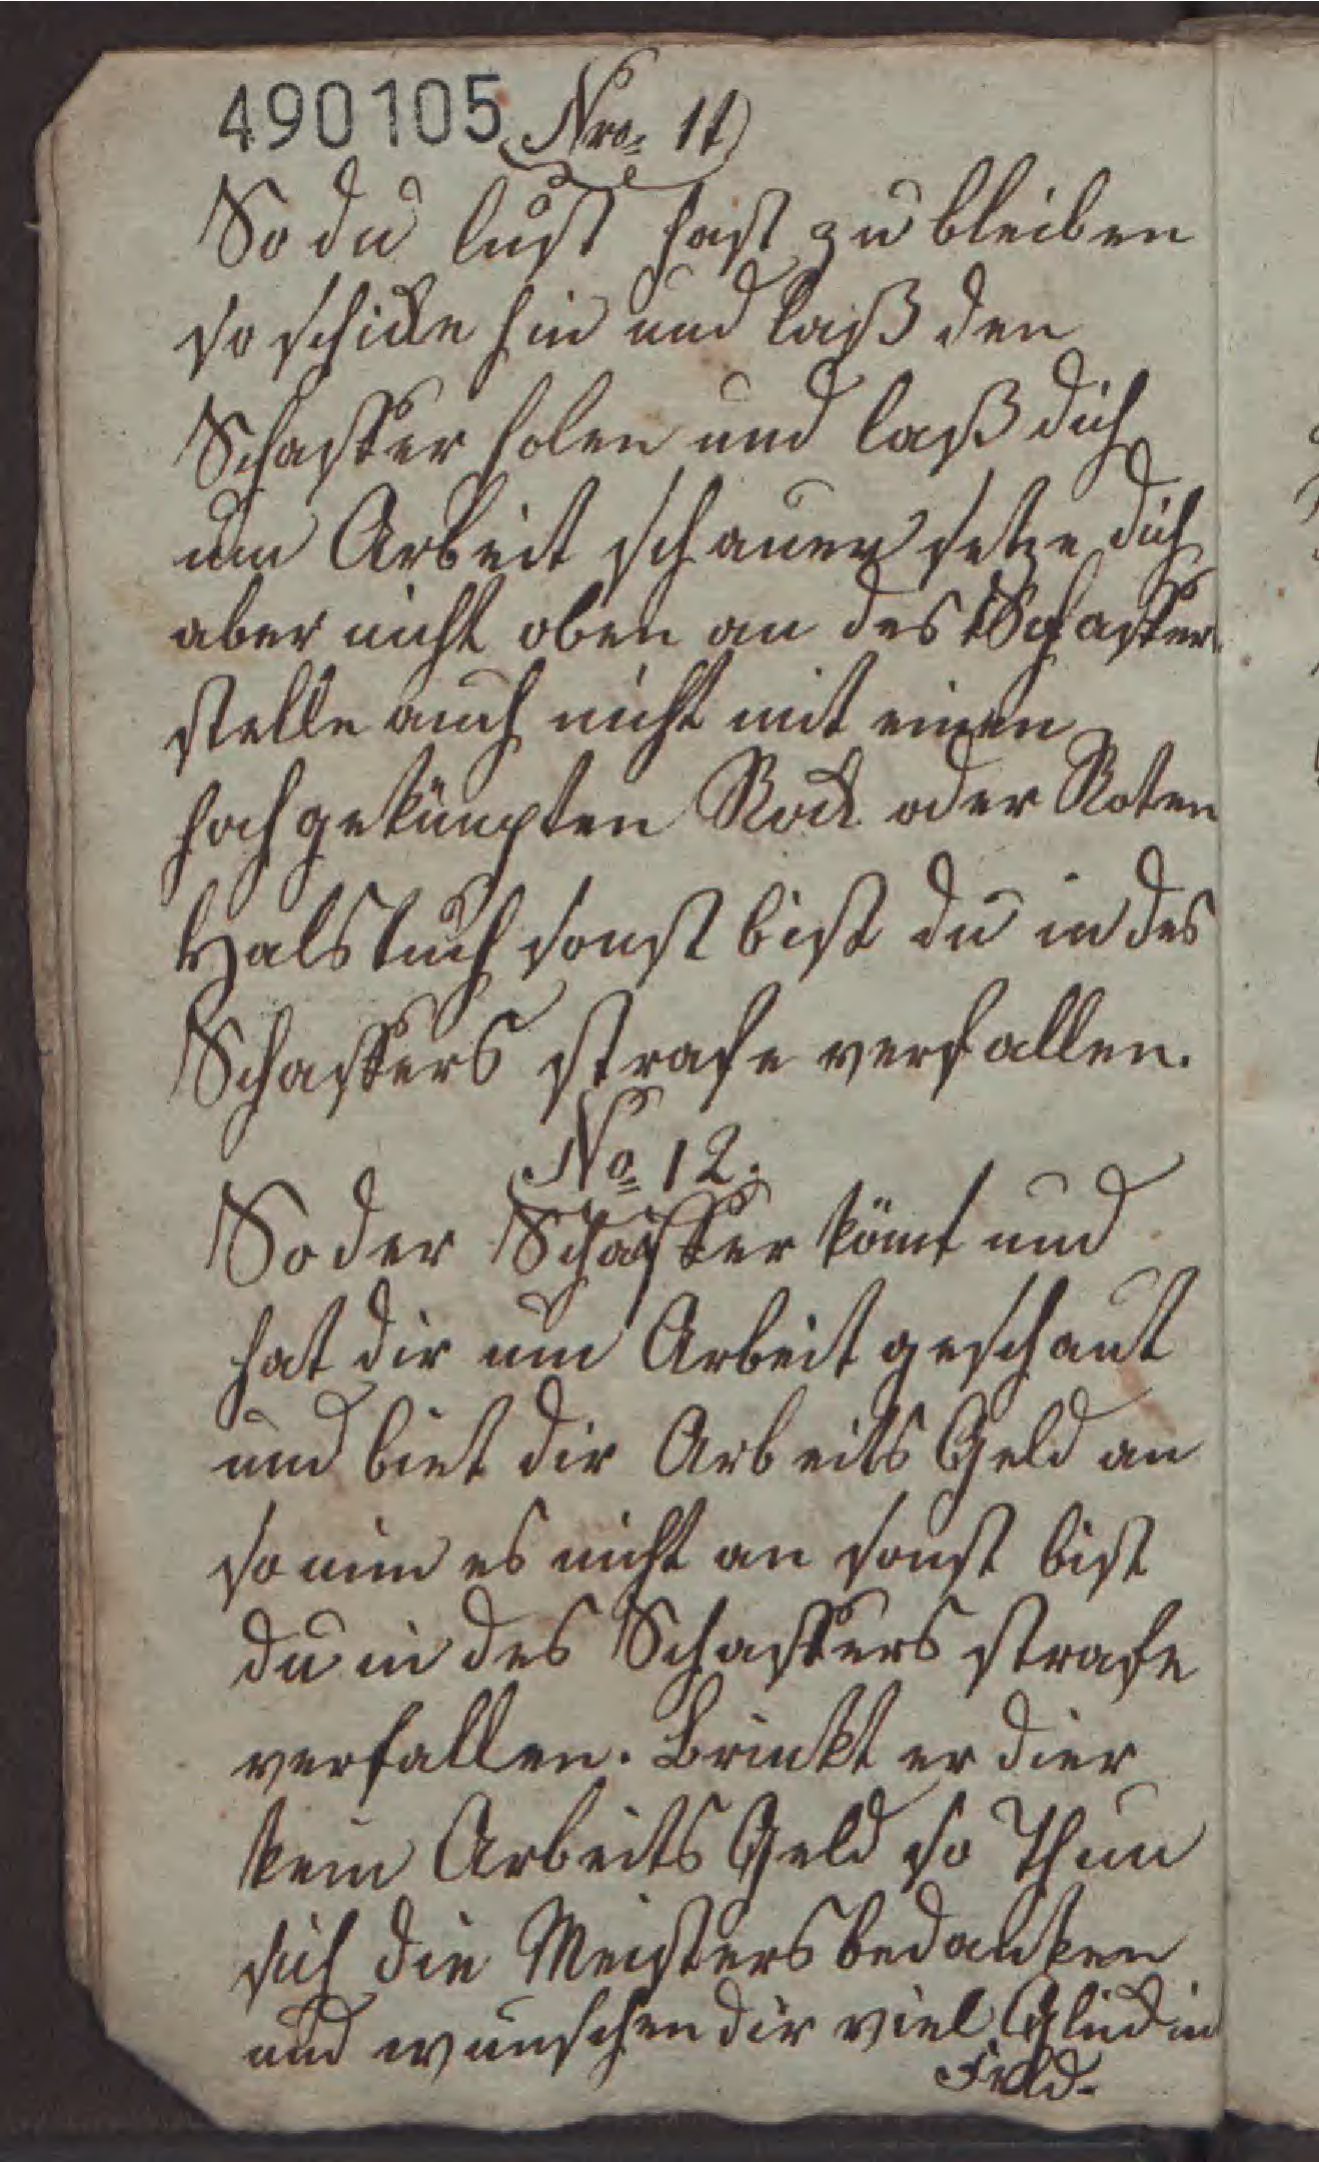 490105 Nro. 11
So du lust hast zu bleiben
so schicke hin und laß den
Schaffer holen und laß dich
um Arbeit schauen setze dich
aber nicht oben an des Schaffers
stelle auch nicht mit einen
hochgeknüpften Rock oder Roten
Halstuch sonst bist du in des
Schaffers strafe verfallen.
No. 12.
So der Schaffer kömt und
hat dir um Arbeit geschaut
und biet dir Arbeits Geld an
so nim es nicht an sonst bist
du in des Schaffers strafe
verfallen. Brinkt er dier
kein Arbeits Geld so Thun
sich die Meisters bedanken
und wünschen dir viel Glück in
Feld.